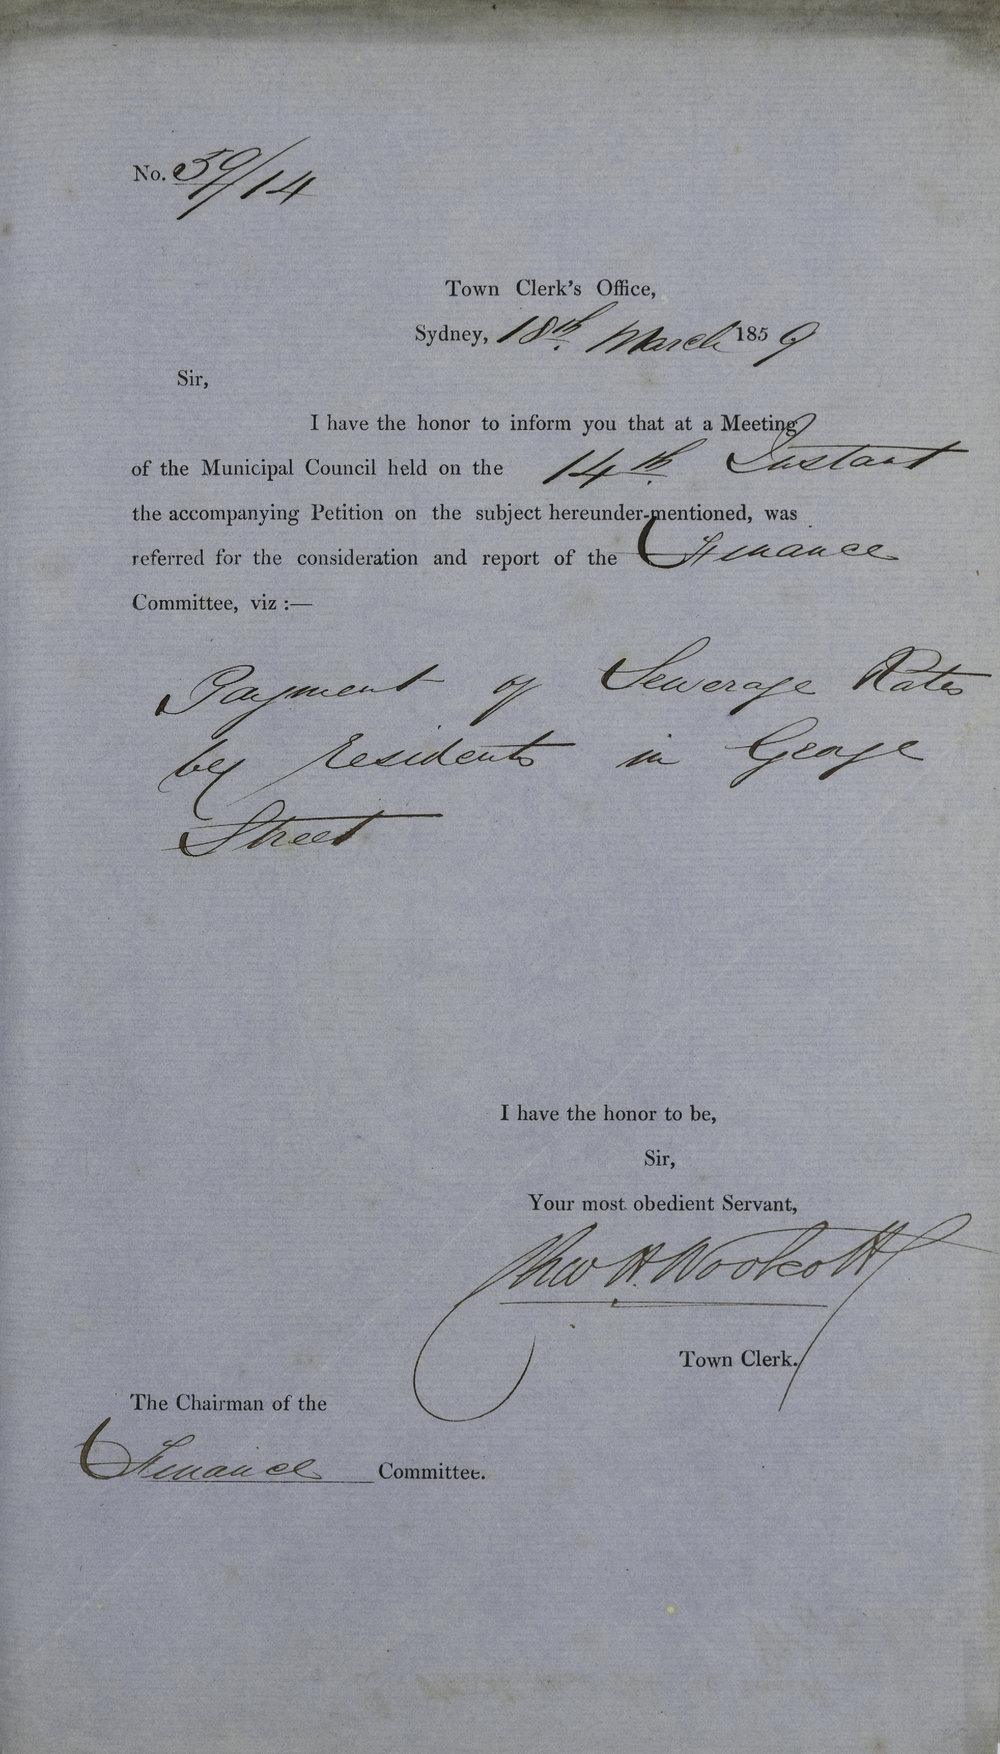 No. 59/14
Town Clerk's Office,
Sydney, 18th March 1859
Sir,
I have the honor to inform you that at a Meeting
of the Municipal Council held on the 14th Instant
the accompanying Petition on the subject hereunder-mentioned, was
referred for the consideration and report of the Finance
Committee, viz :—
Payment of Sewerage Rates
by residents in George
Street
I have the honor to be,
Sir,
Your most obedient Servant,
Chas H. Woolcott
Town Clerk.
The Chairman of the
Finance Committee.